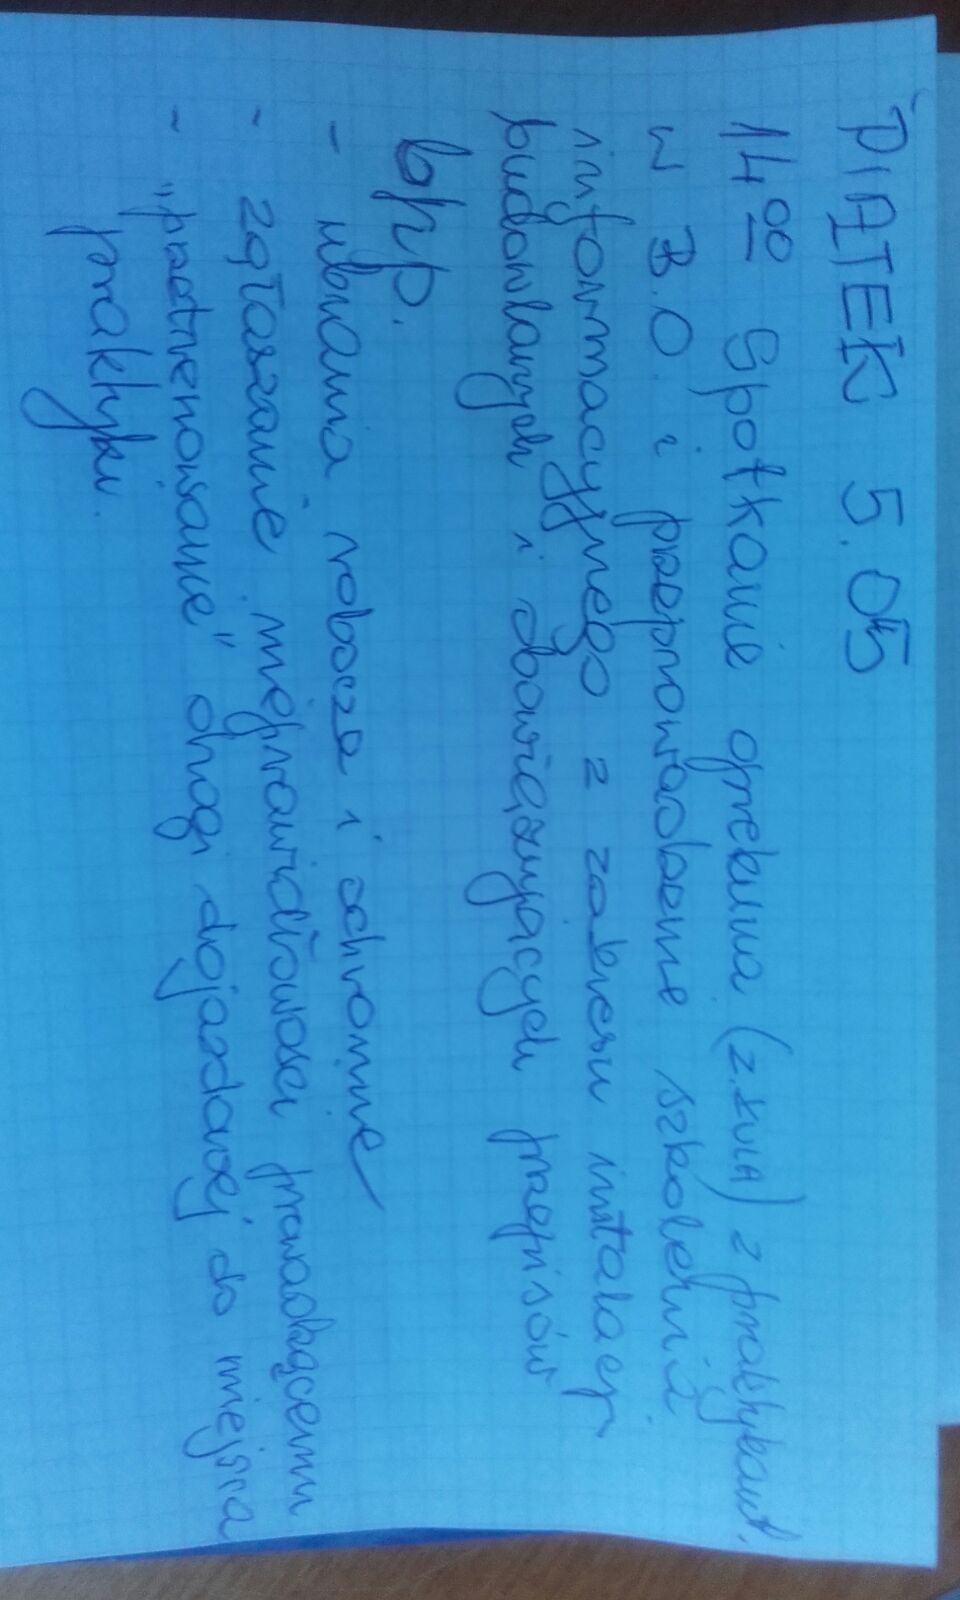 PIĄTEK 5.05
14⁰⁰ Spotkanie opiekuna (z. KULA) z praktykant.
w B.O. i przeprowadzenie szkolenia
informacyjnego z zakresu instalacji
budowlanych i obowiązujących przepisów
bhp.
- ubrania robocze i ochronne
- zgłaszanie nieprawidłowości prowadzącemu
- "przetrenowanie" drogi dojazdowej do miejsca
praktyki.